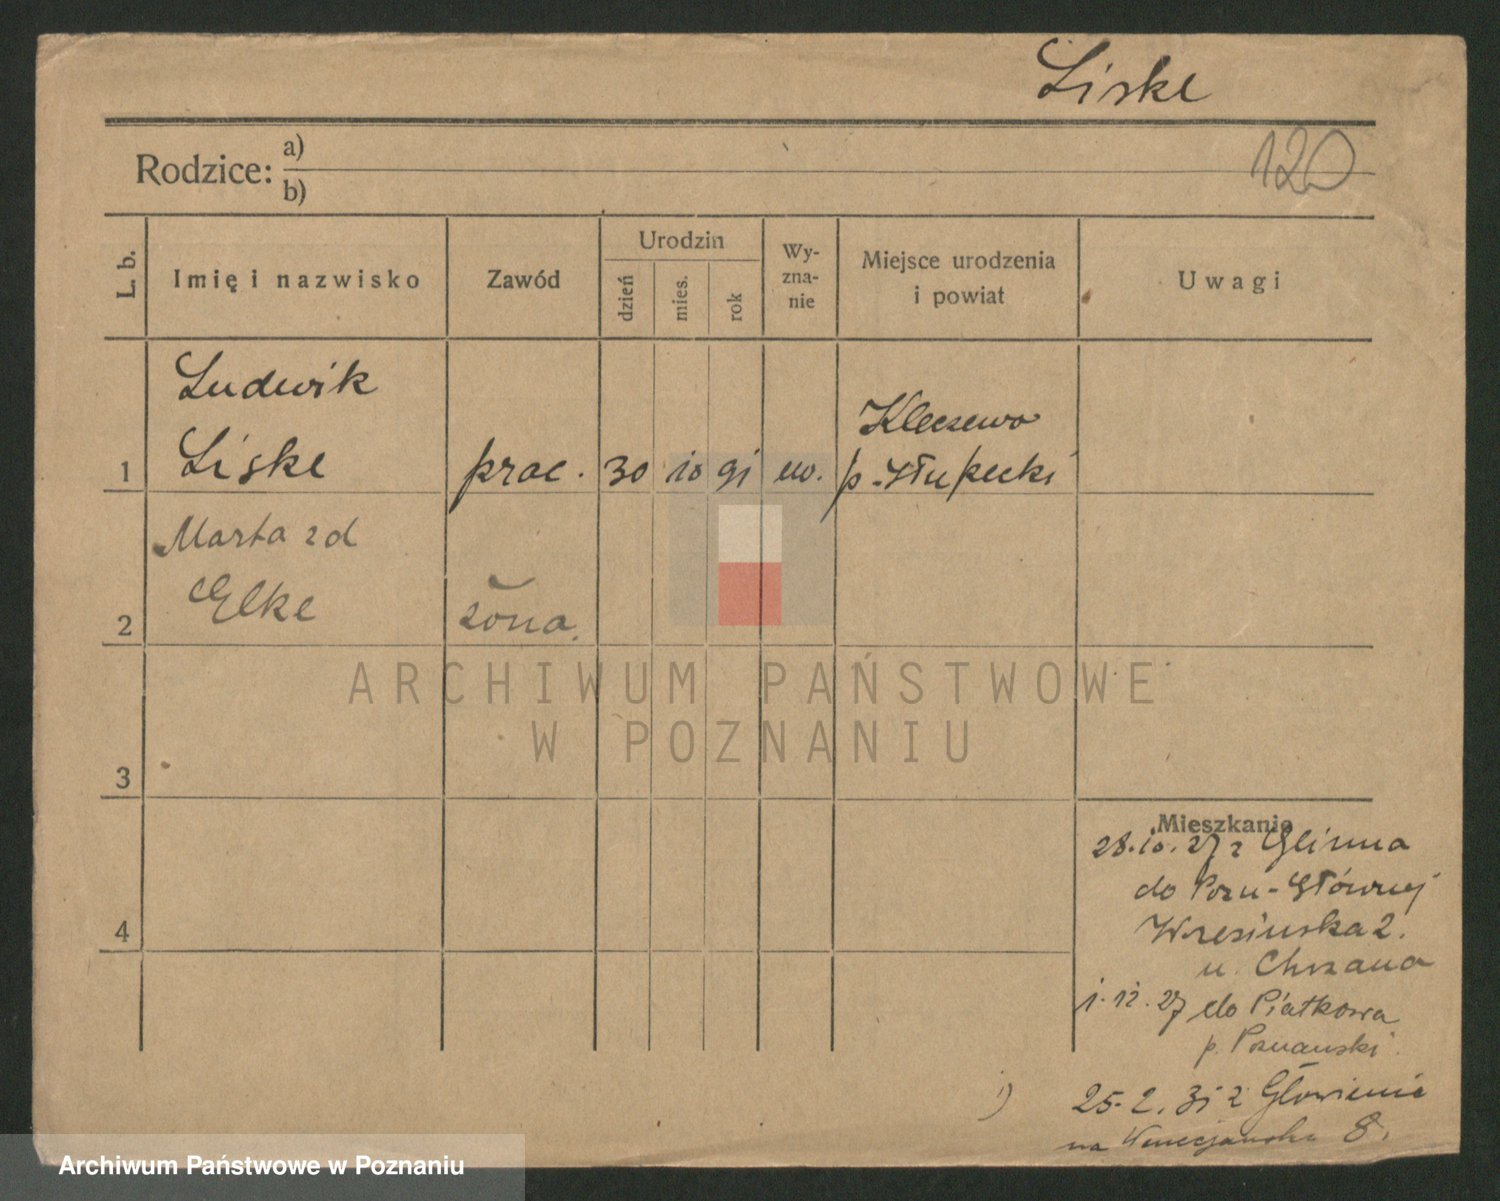 Liske
120
Rodzice: a)
b)
L. b.
Imię i nazwisko
Zawód
Urodzin
dzień
mies.
rok
Wy-
zna-
nie
Miejsce urodzenia
i powiat
Uwagi
Ludwik
Kleczewo
1 Liske prac. 30 10 91 ew. p. Słupecki
Marta z d
2 Elke żona.
ARCHIWUM PAŃSTWOWE
W POZNANIU
3
Mieszkanie
28.10.27 z Glinna
do Pozn-Głównej
4
Wrzesińska 2.
u. Chrzana
1.12.27 do Piątkowa
p. Poznański.
1) 25.2.31 z Głowieniec
na Wenecjańska 8.
Archiwum Państwowe w Poznaniu